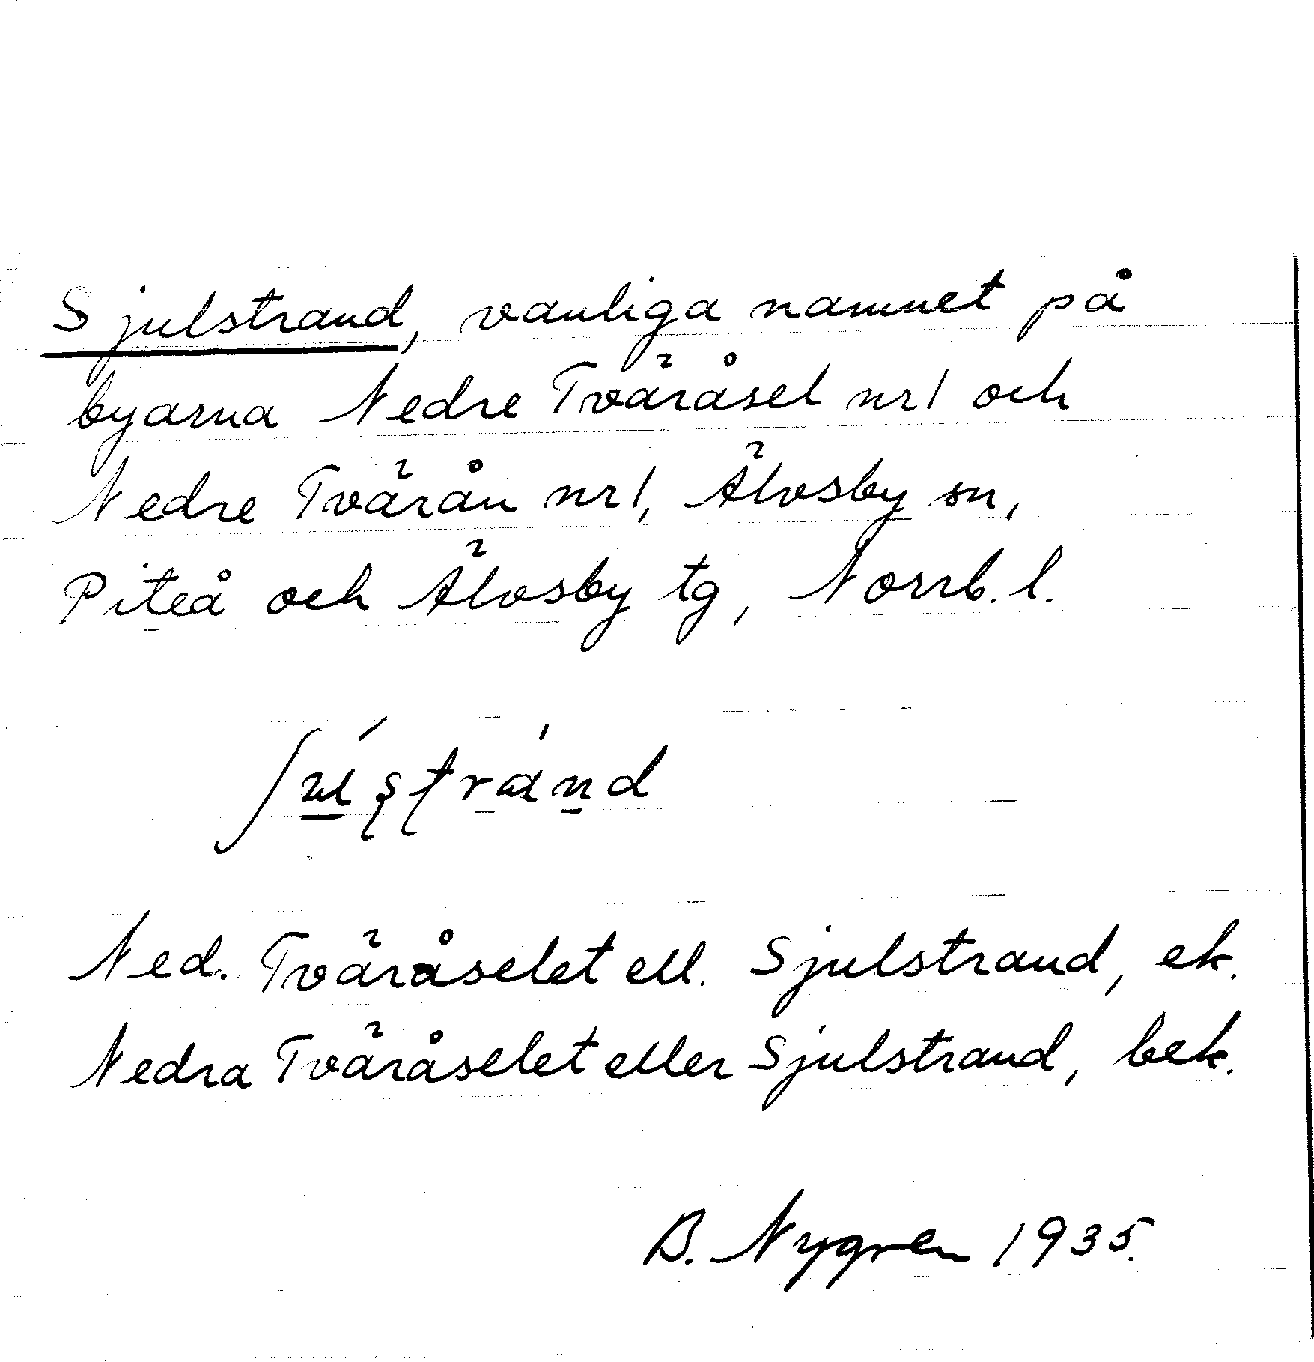 Sjulstrand, vanliga namnet på
byarna Nedre Tväråsel nr 1 och
Nedre Tvärån nr 1, Älvsby sn,
Piteå och Älvsby tg, Norrb. l.
Ned. Tväråselet ell. Sjulstrand, ek.
Nedra Tväråselet eller Sjulstrand, bek.
B. Nygren 1935.